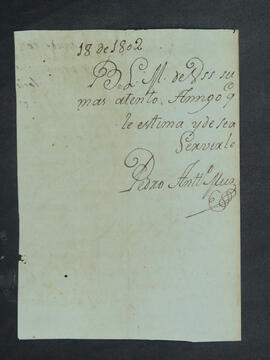 18 de 1802
B. L. M. de Vss su
mas atento Amigo q
le estima y desea
Servirle
Pedro Antto Muz